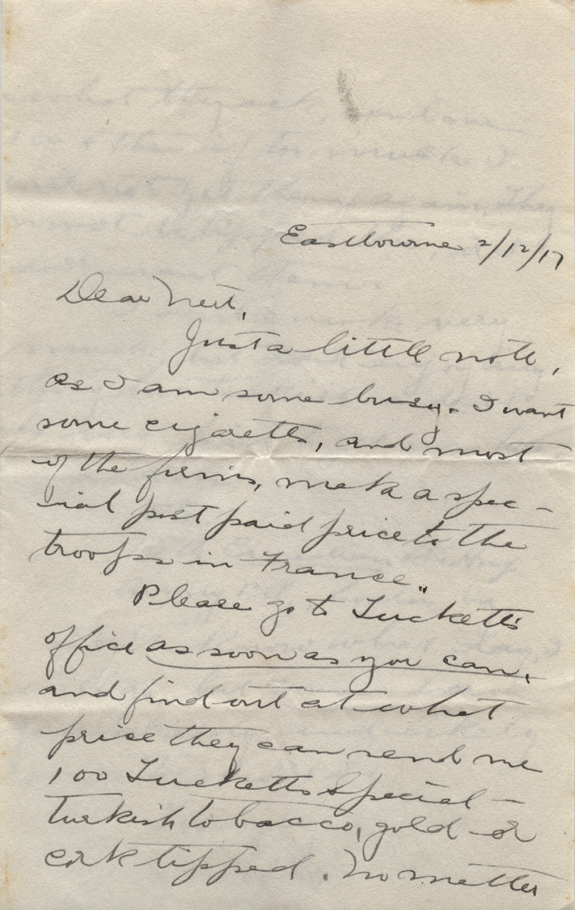 Eastbourne 2/12/17
Dear Neil,
Just a little note,
as I am some busy. I want
some cigaretts, and most
of the firms, make a spec-
ial post paid price to the
troops in France".
Please go to Tucketts
office as soon as you can,
and find out at what
price they can send me
100 Tucketts Special -
turkish tobacco, gold or
cork tipped. No matter